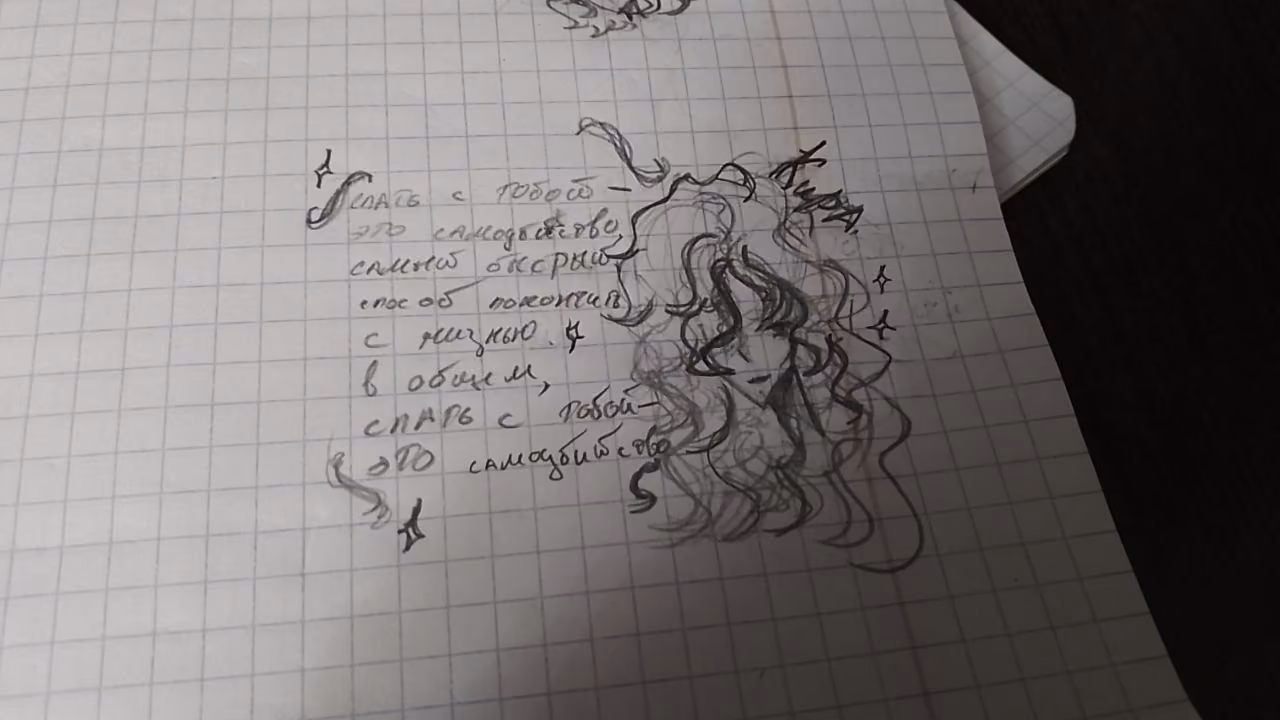 спать с тобой —
это самоубийство,
самый быстрый
способ покончить
с жизнью.
в общем,
спать с тобой —
это самоубийство